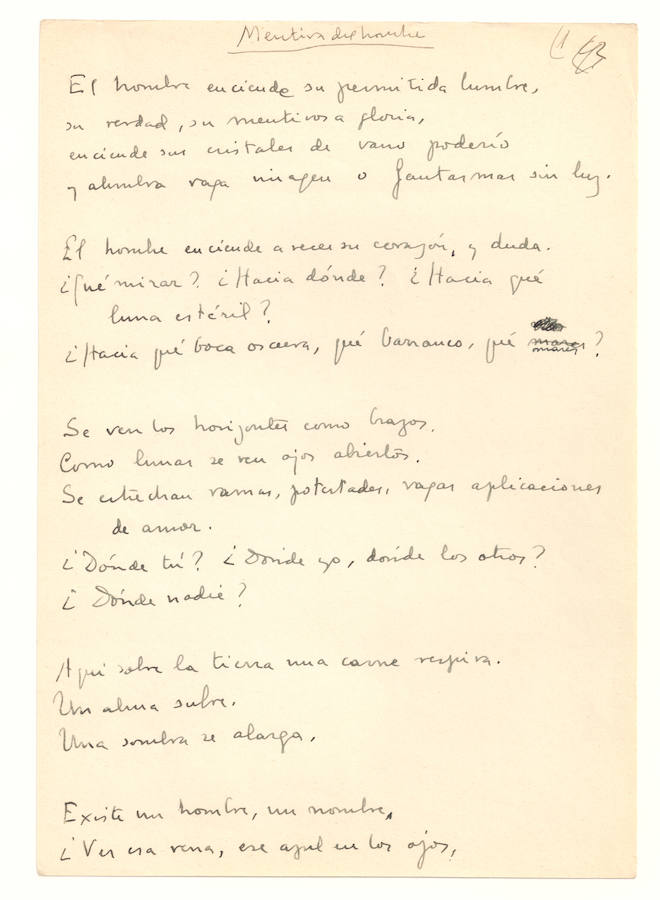 Mentira del hombre
El hombre enciende su permitida lumbre,
su verdad, su mentirosa gloria,
enciende sus cristales de vano poderío
y alumbra vaga imagen o fantasmas sin luz.
El hombre enciende a veces su corazón, y duda.
¿Qué mirar? ¿Hacia dónde? ¿Hacia qué
luna estéril?
¿Hacia qué boca oscura, qué barranco, qué mares?
Se ven los horizontes como brazos.
Como lunas se ven ojos abiertos.
Se estrechan ramas, potestades, vagas aplicaciones
de amor.
¿Dónde tú? ¿Dónde yo, dónde los otros?
¿Dónde nadie?
Aquí sobre la tierra una carne respira.
Un alma sufre.
Una sombra se alarga.
Existe un hombre, un nombre,
¿Ves esa vena, ese azul en los ojos,